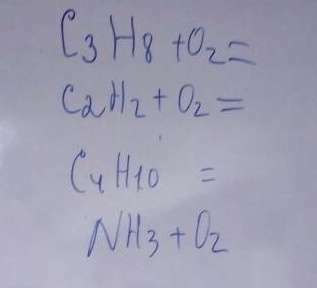 C3H8+O2=
C2H2+O2=
C4H10 =
NH3+O2